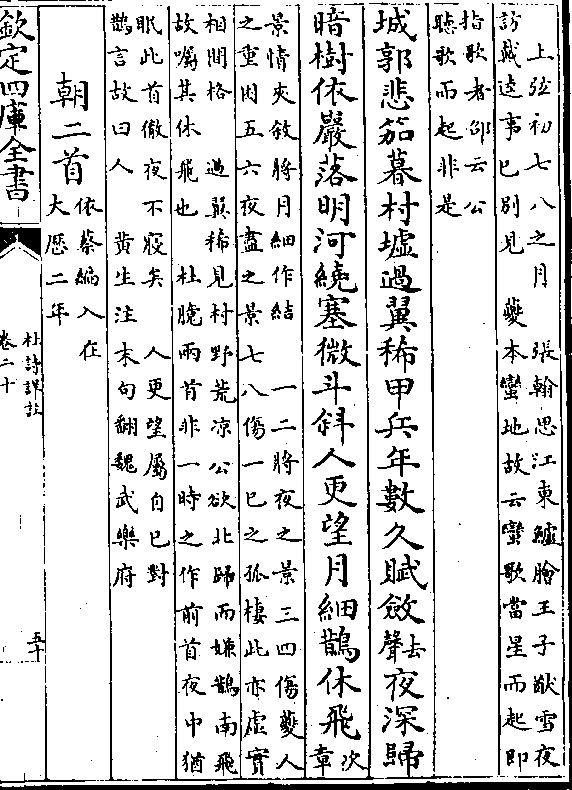 上弦初七八之月　張翰思江東鱸膾王子猷雪夜
訪戴逵事已別見　夔本蠻地故云蠻歌當星而起即
指歌者邵云公
聽歌而起非是
城郭悲笳暮村墟過翼稀甲兵年數久賦斂去聲夜深歸
暗樹依巖落明河繞塞微斗斜人更望月細鵲休飛次章
景情夾敘將月細作結　一二將夜之景三四傷夔人
之重困五六夜盡之景七八傷一己之孤棲此亦虛實
相間格　過翼稀見村野荒涼公欲北歸而嫌鵲南飛
故囑其休飛也　杜臆兩首非一時之作前首夜中猶
眠此首徹夜不寢矣　人更望屬自已對
鵲言故曰人　黄生注末句翻魏武樂府
朝二首
依蔡編入在
大厯二年
欽定四庫全書
杜詩詳註
卷二十
五十